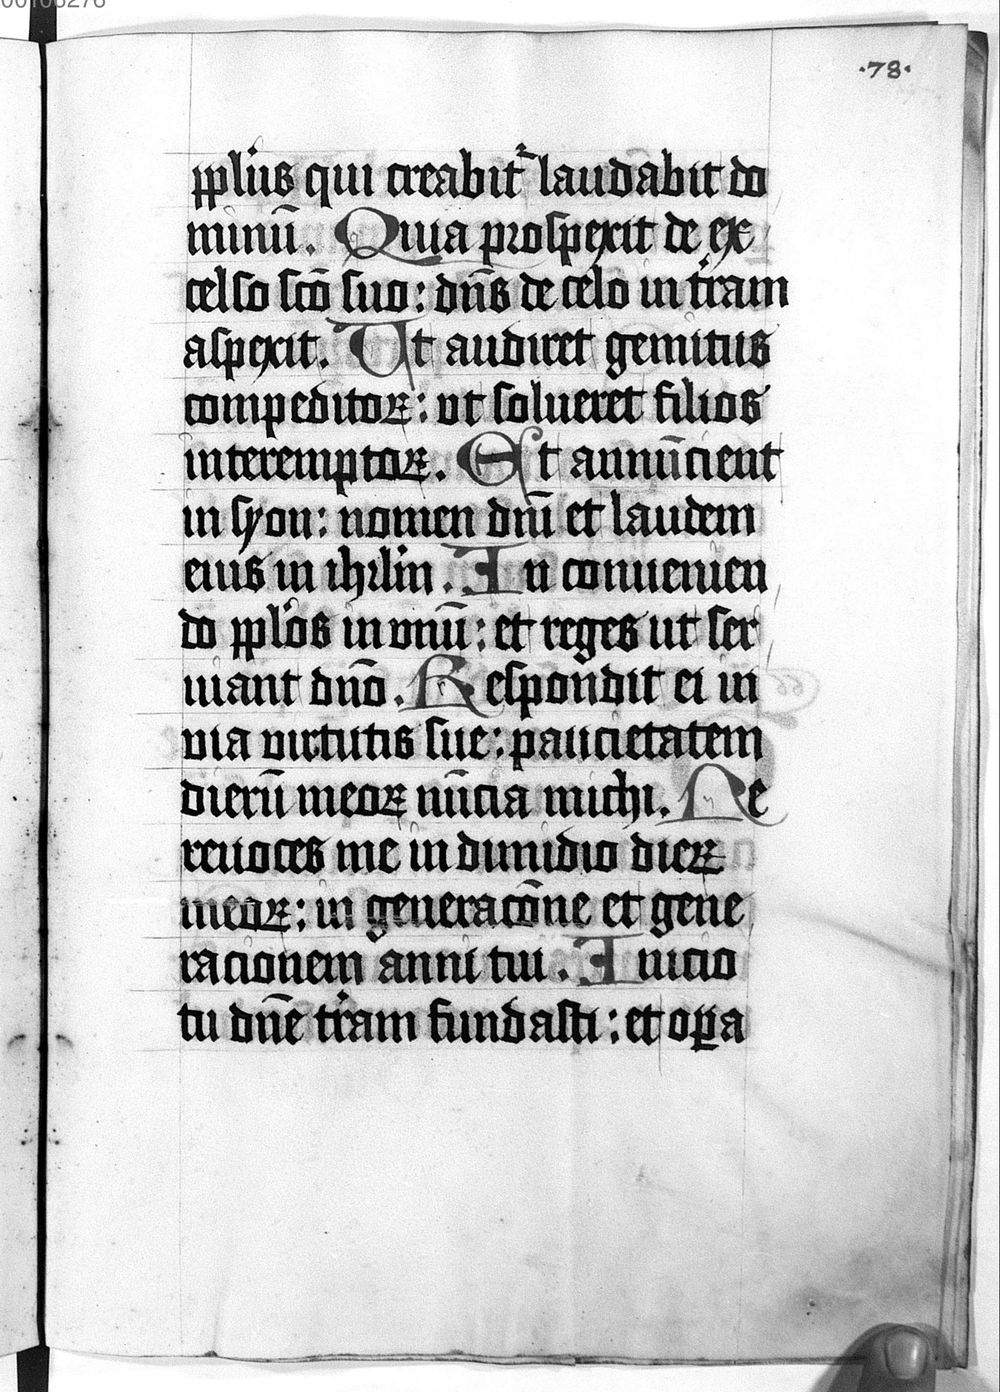 00106276
·78·
pplus qui creabit᷑ laudabit do
minū. Quia prospexit de ex
celso scō suo: dn̄s de celo in tr̄am
aspexit. Ut audiret gemitus
compeditoꝝ: ut solueret filios
interemptoꝝ. Et annūcient
in syon: nomen dn̄i et laudem
eius in ihrl̄m. In conuenien
do pplos in unū: et reges ut ser
uiant dn̄o. Respondit ei in
uia uirtutis sue: paucietatem
dierū meoꝝ nūcia michi. Ne
reuoces me in dimidio dieꝝ
meoꝝ: in generacōne et gene
racionem anni tui. Inicio
tu dn̄e tr̄am fundasti: et oꝑa